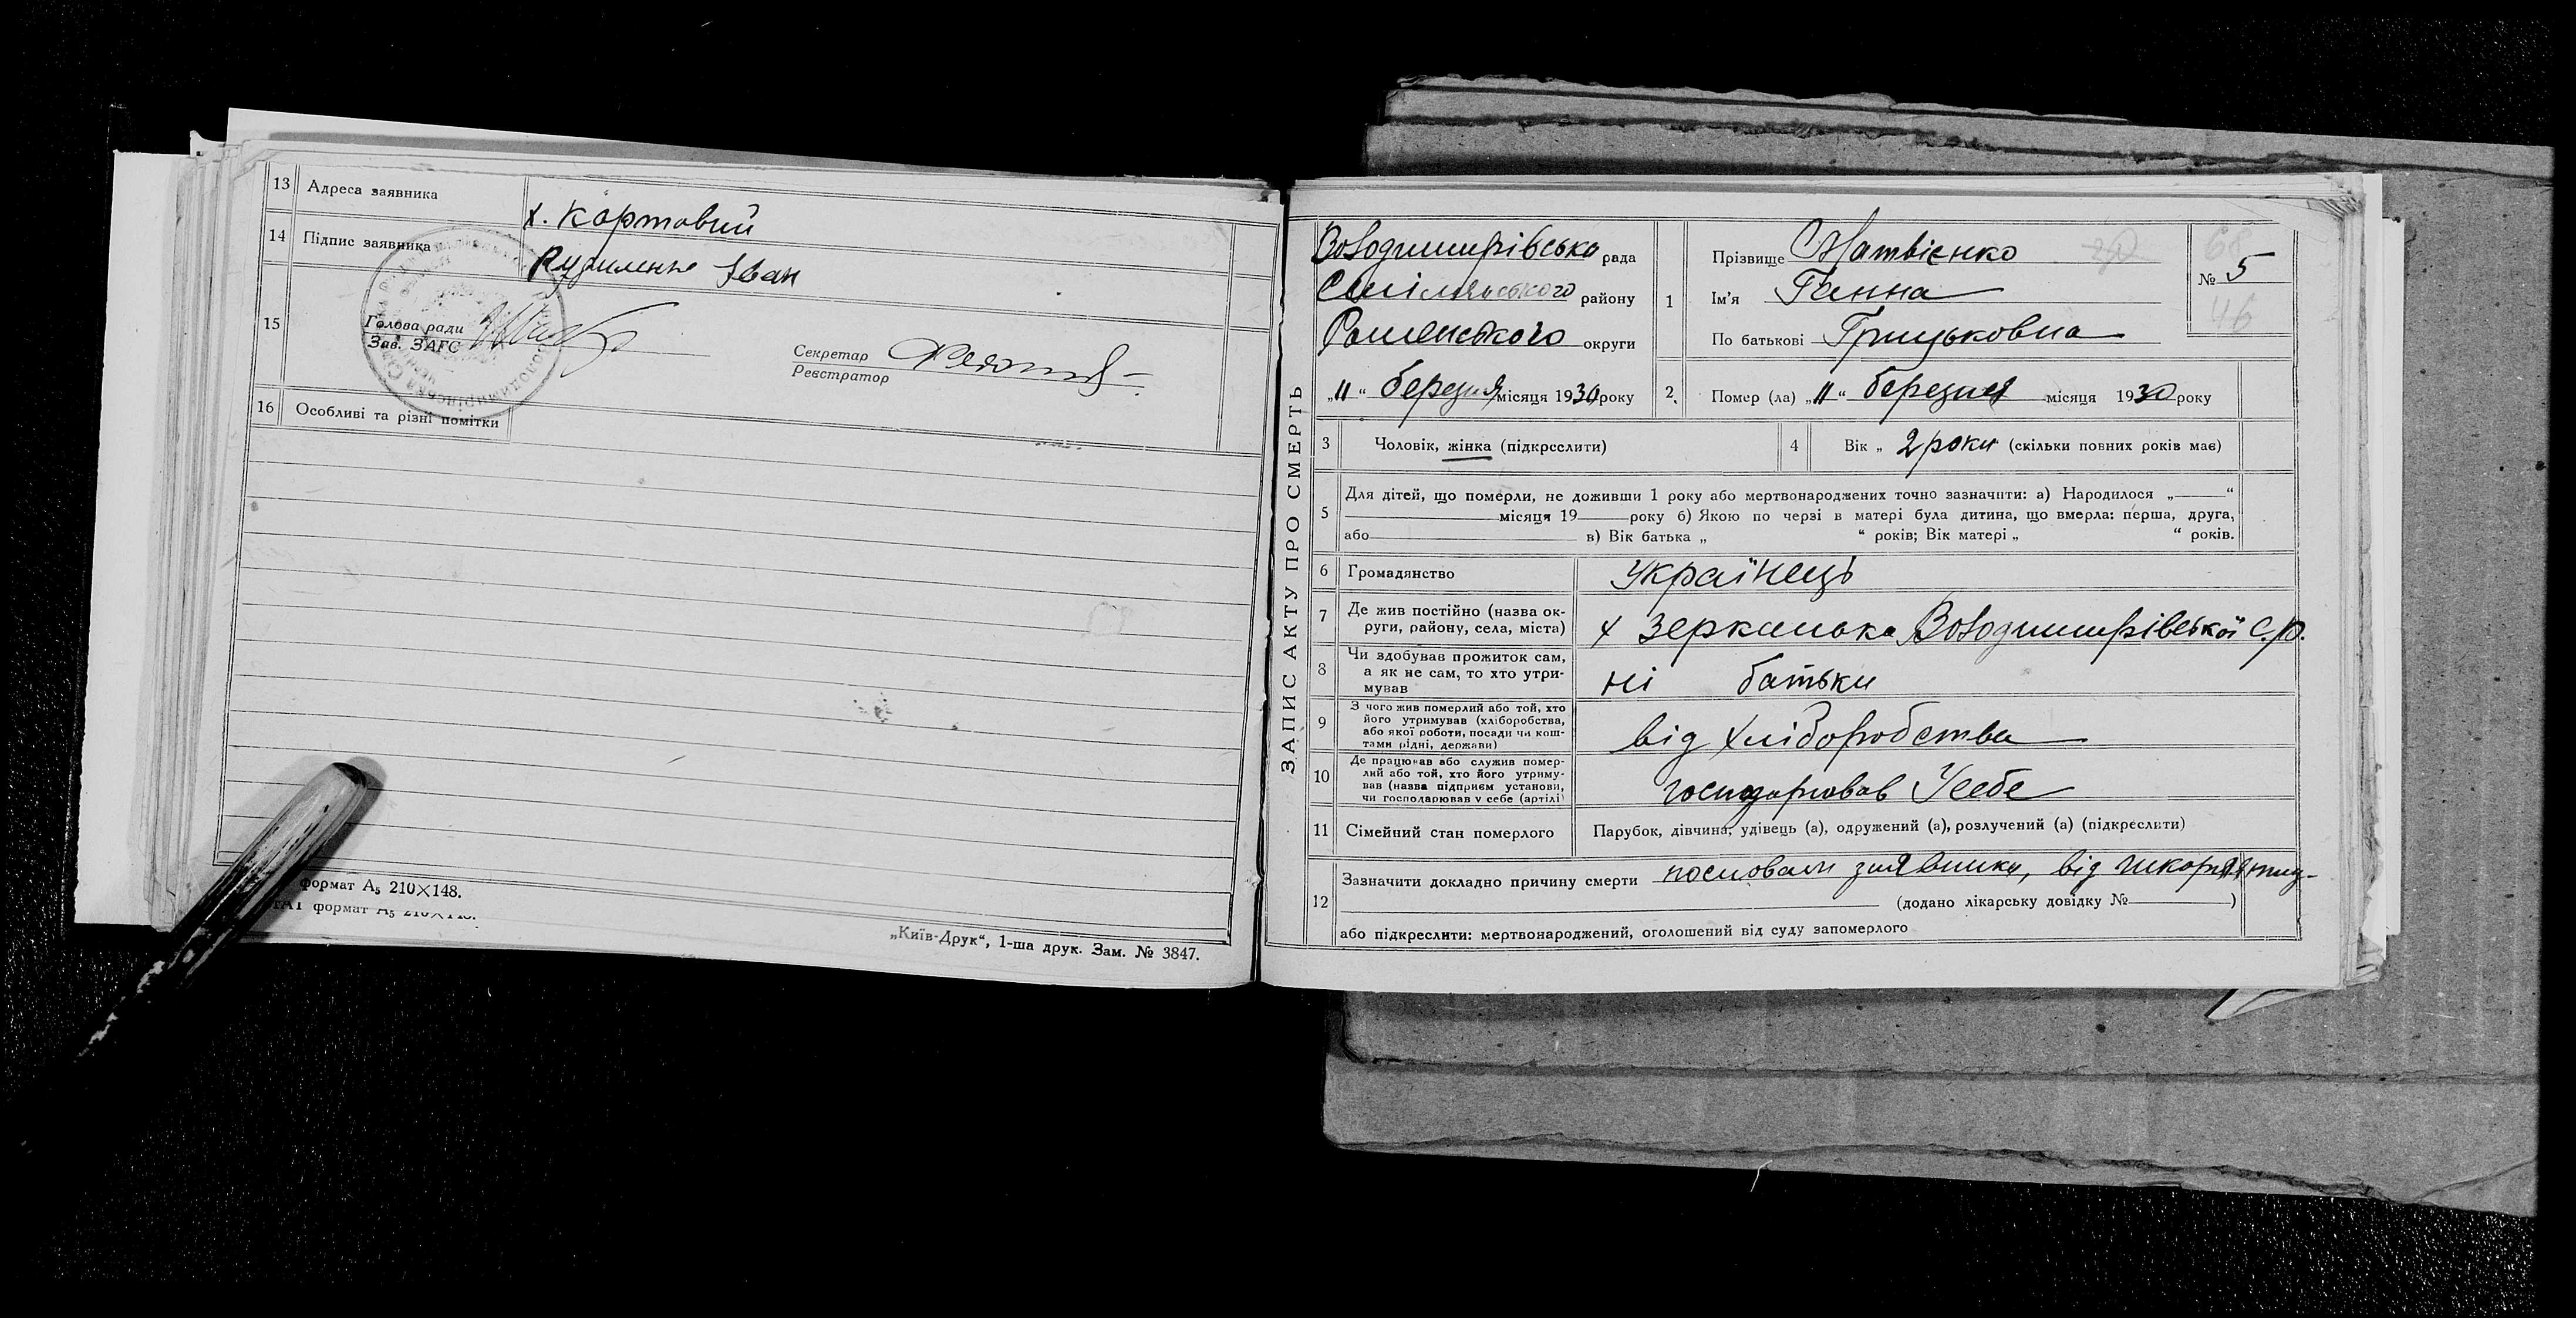 13 Адреса заявника х. Кортовий
14 Підпис заявника Іван
15 Голова ради
Зав. ЗАГС
Секретар
Реєстратор
16 Особливі та різні помітки
формат А5 210×148.
„Київ-Друк“, 1-ша друк. Зам. № 3847.
ЗАПИС АКТУ ПРО СМЕРТЬ
Володимирівська рада
району
Роменського округи
„11“ березня місяця 1930 року
1 Прізвище Матвієнко
Ім'я Ганна
По батькові Грицьковна
№ 5
46
2. Помер (ла) „11“ березня місяця 1930 року
3 Чоловік, жінка (підкреслити)
4 Вік „ 2 роки (скільки повних років має)
5 Для дітей, що померли, не доживши 1 року або мертвонароджених точно зазначити: а) Народилося „ “
місяця 19 року б) Якою по черзі в матері була дитина, що вмерла: перша, друга,
або в) Вік батька „ “ років; Вік матері „ “ років.
6 Громадянство Українець
7 Де жив постійно (назва ок-
руги, району, села, міста) х Зеркалька Володимирівської С.р.
8 Чи здобував прожиток сам,
а як не сам, то хто утри-
мував ні батьки
9 З чого жив померлий або той, хто
його утримував (хліборобства,
або якої роботи, посади чи кош-
тами рідні, держави) від хліборобства
10 Де працював або служив помер-
лий або той, хто його утриму-
вав (назва підприєм установи,
чи господарював у себе (артілі) господарював Усебе
11 Сімейний стан померлого Парубок, дівчина, удівець (а), одружений (а), розлучений (а) (підкреслити)
12 Зазначити докладно причину смерти заявника, від
(додано лікарську довідку № )
або підкреслити: мертвонароджений, оголошений від суду запомерлого